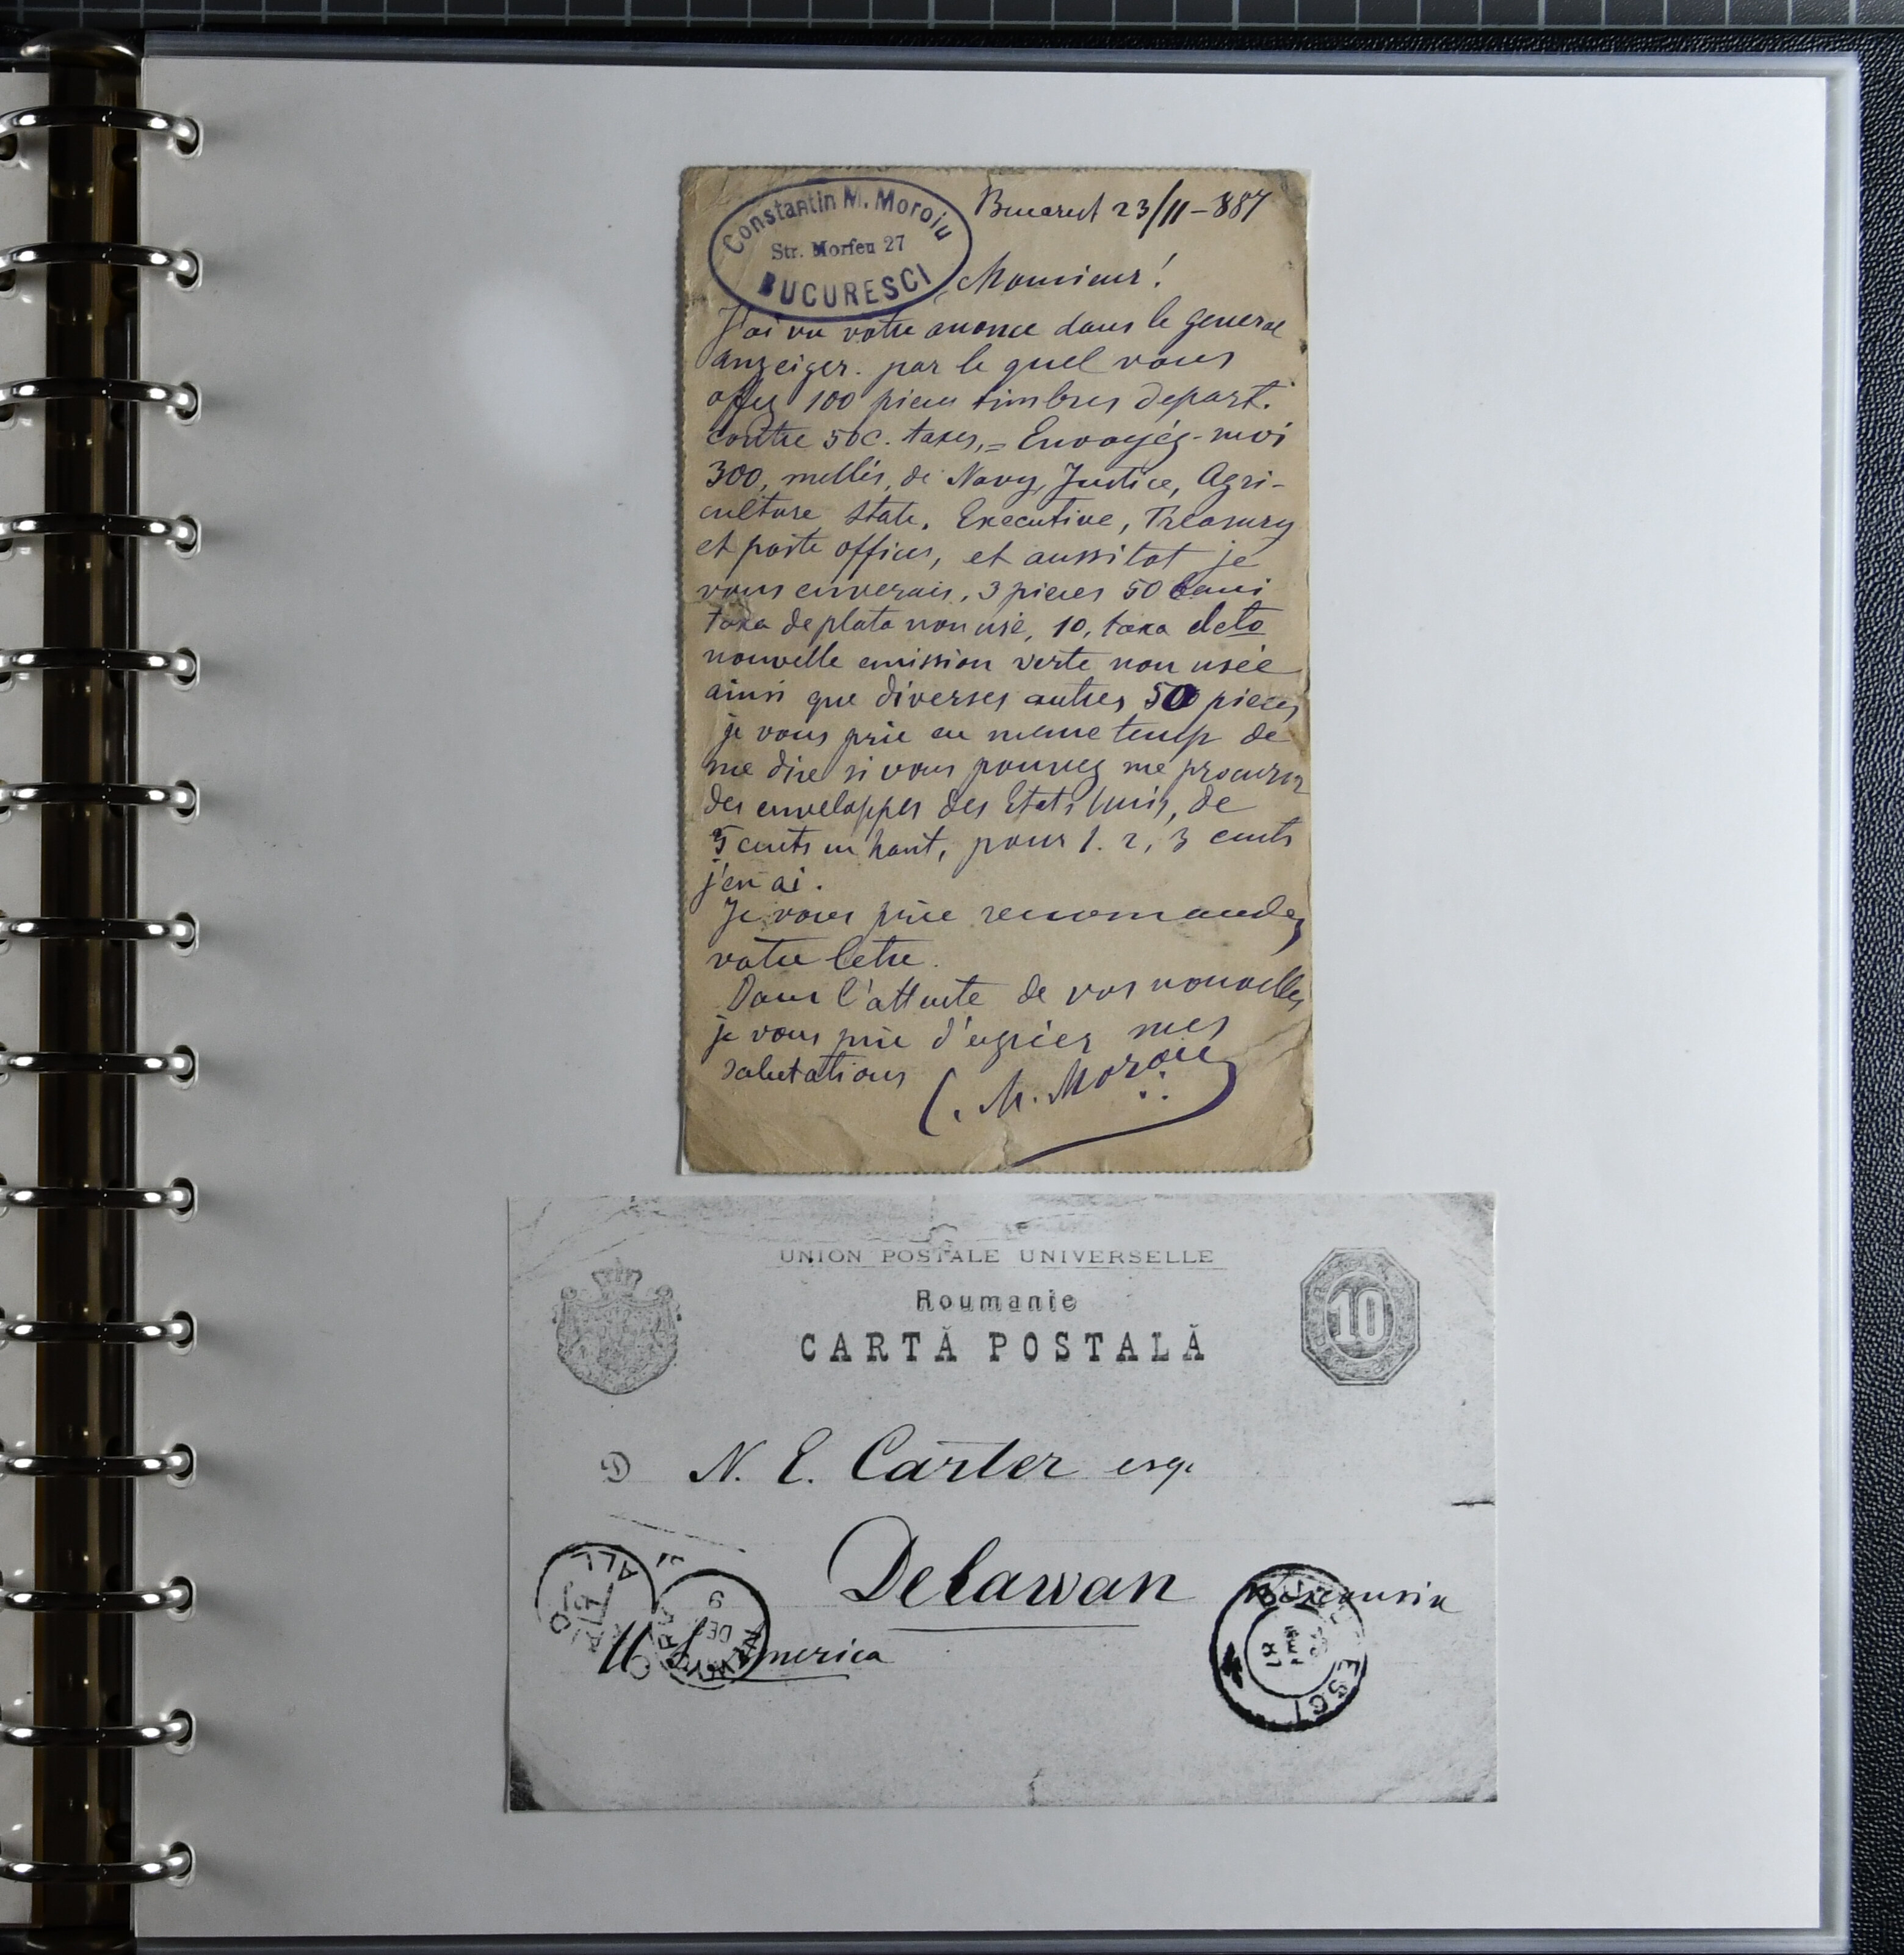 Constantin M. Moroiu
Str. Morfeu 27
BUCURESCI
Bucarest 23/11-887
Monsieur!
J'ai vu votre anonce dans le general
anzeiger. par le quel vous
offez 100 pieces timbres depart.
contre 50 c. taxes,= Envoyéz-moi
300, mellés, de Navy, Justice, Agri-
culture, State, Executive, Treasury
et poste offices, et aussitot je
vous enverais, 3 pieces 50 bani
taxa de plata non usé, 10, taxa deto
nouvelle emission verte non usée
ainsi que diverses autres 50 pieces
je vous prie en meme temp de
me dire si vous pouvez me procurer
des enveloppes des Etats Unis, de
5 cents en haut, pour 1. 2, 3 cents
j'en ai.
Je vous prie recomandez
votre letre.
Dans l'attente de vos nouvelles
je vous prie d'agréer mes
salutations
C. M. Moroiu
UNION POSTALE UNIVERSELLE
Roumanie
CARTĂ POSTALĂ
10
D
N. E. Carter esqr
Delavan Wisconsin
U S America
ALL
9
DEC